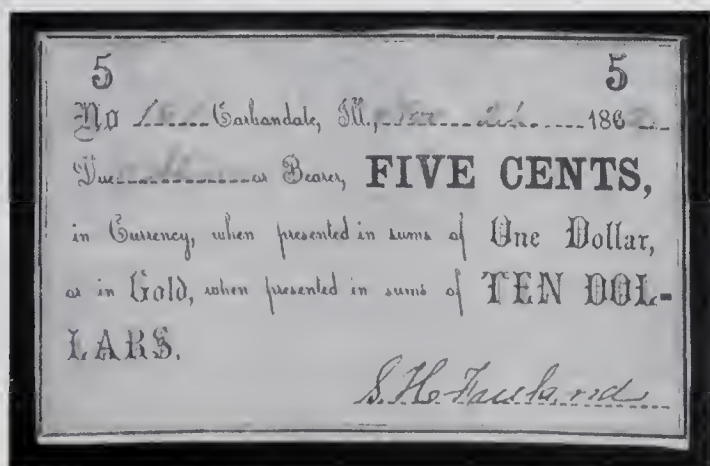 5 5
No Carbondale, Ill., 186
Due or Bearer, FIVE CENTS,
in Currency, when presented in sums of One Dollar,
or in Gold, when presented in sums of TEN DOL-
LARS.
S. H.